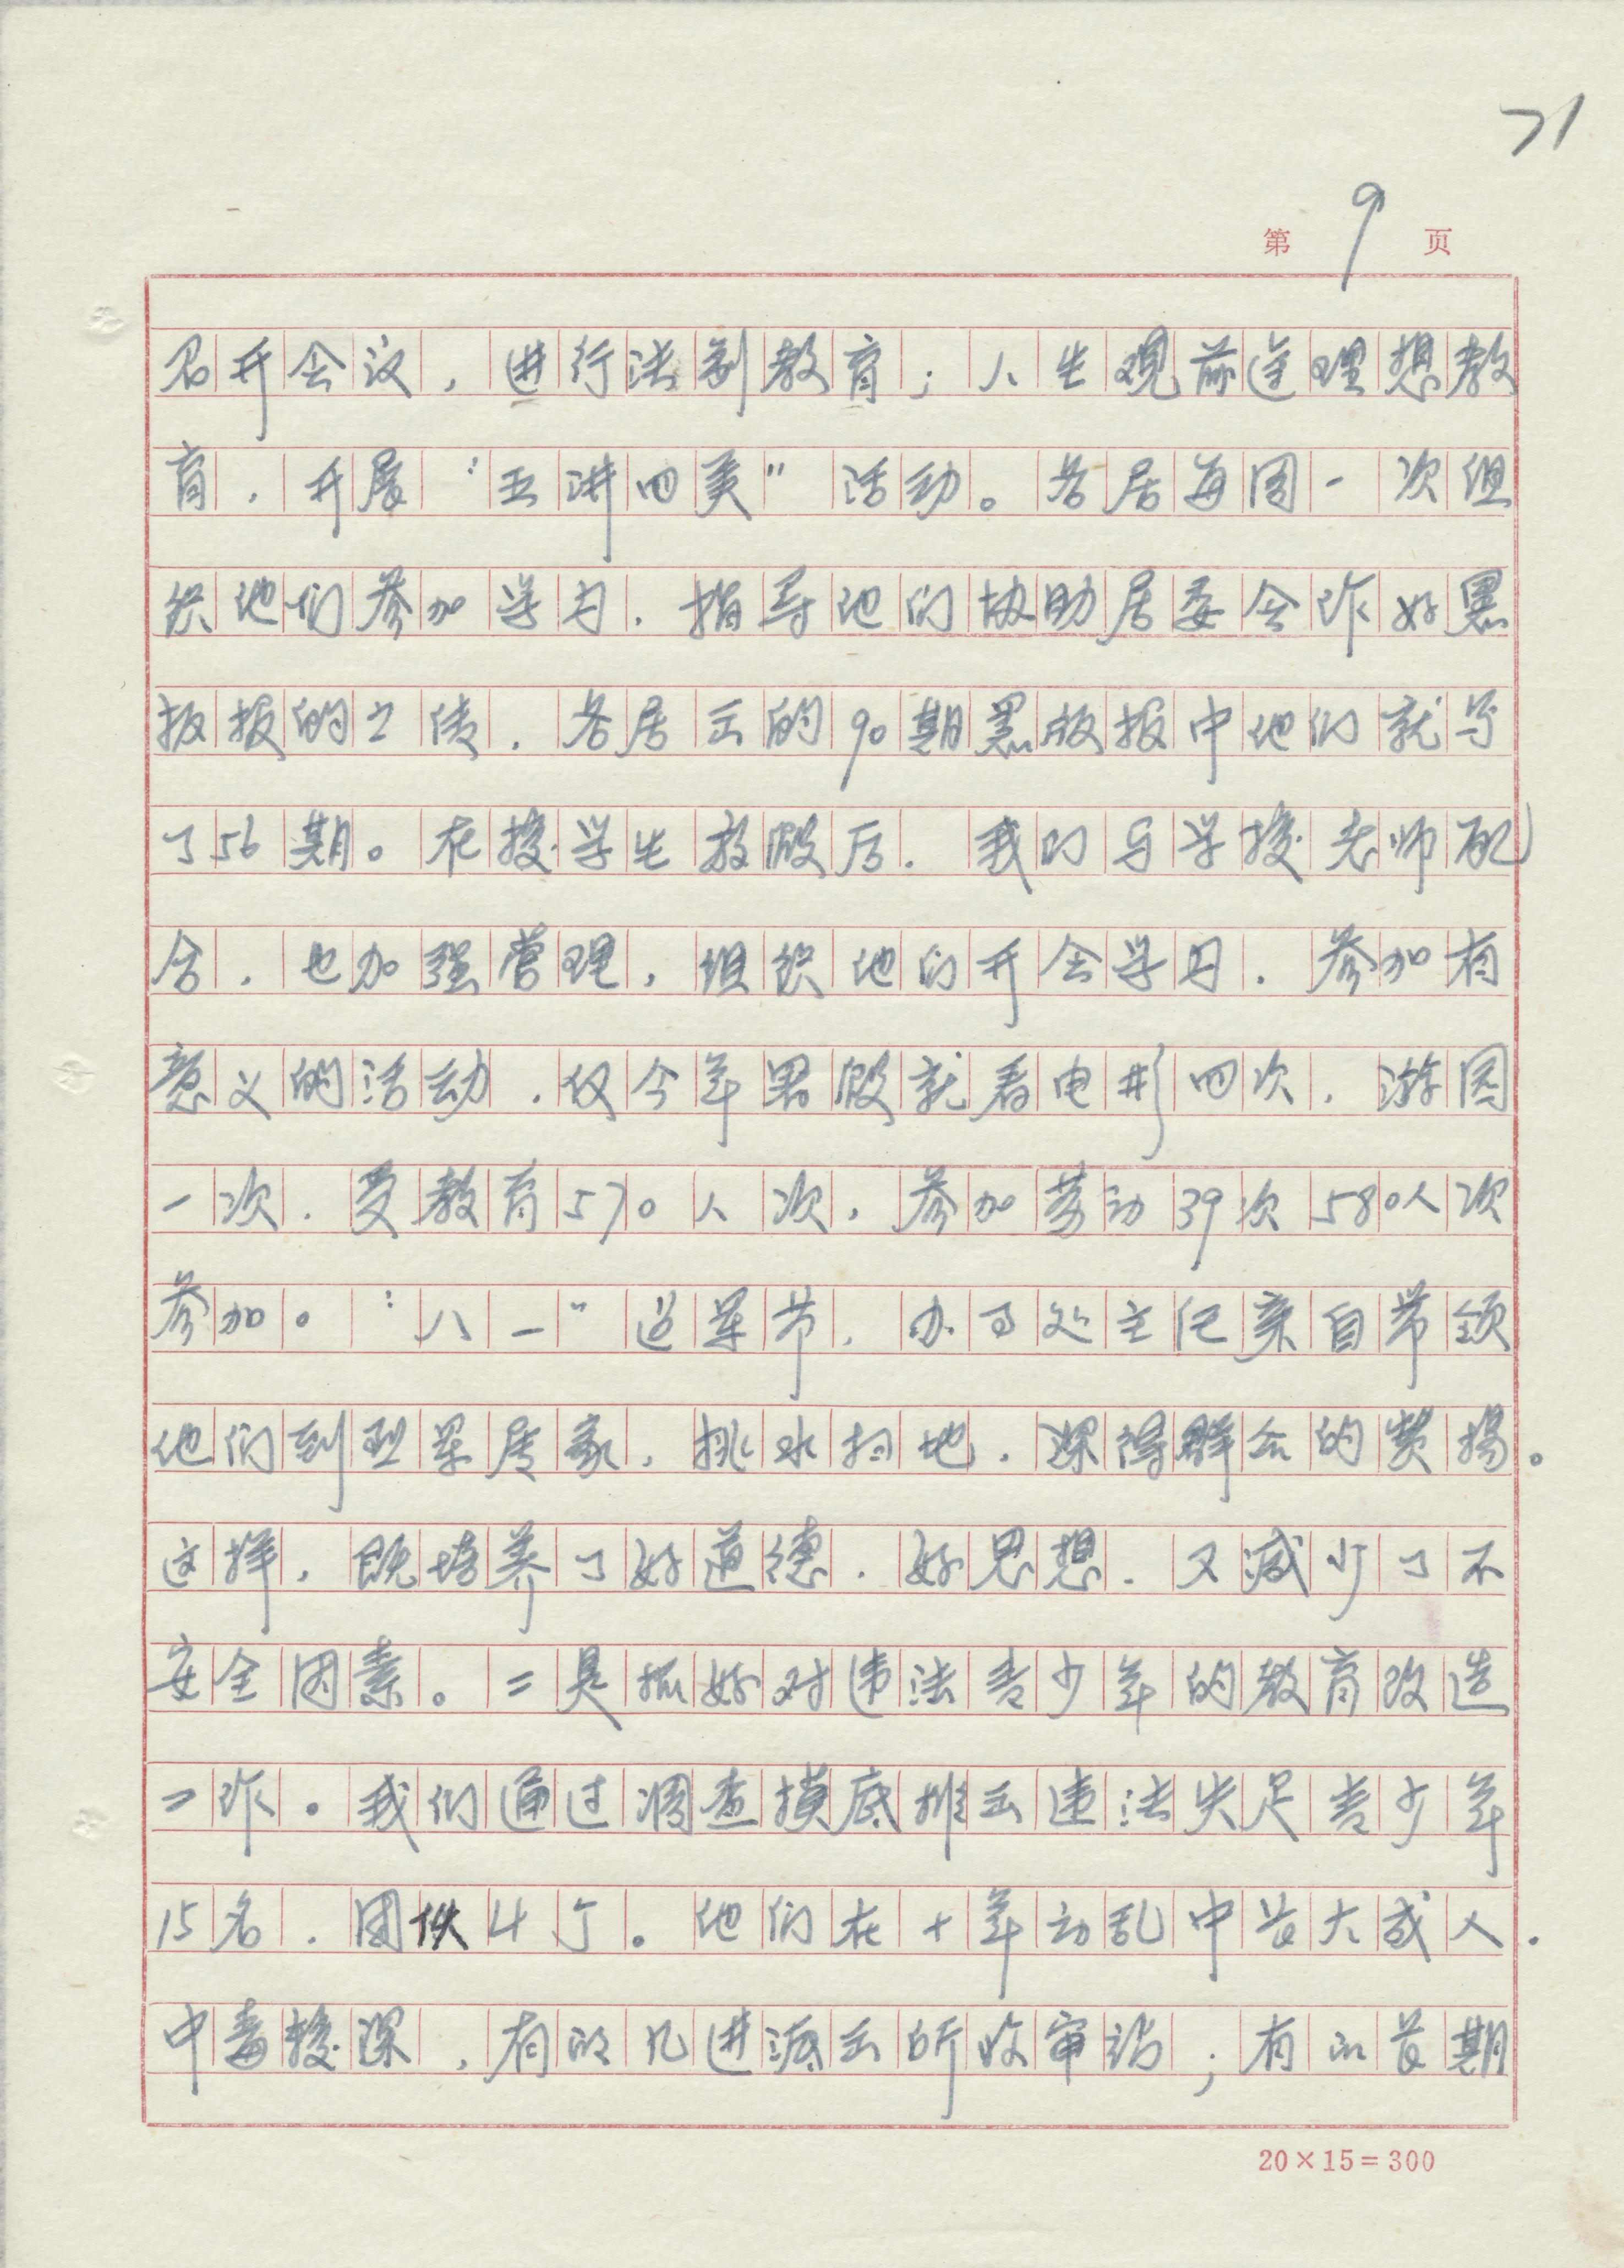 71
第 9 页
召开会议，进行法制教育；人生观前途理想教
育，开展“五讲四美”活动。各居每周一次组
织他们参加学习，指导他们协助居委会作好黑
板报的工作，各居出的90期黑板报中他们就写
了56期。在校学生放假后，我们与学校老师配
合，也加强管理，组织他们开会学习，参加有
意义的活动，仅今年暑假就看电影四次，游园
一次，受教育570人次，参加劳动39次580人次
参加。“八一”建军节，办事处主任亲自带领
他们到烈军属家，挑水扫地，深得群众的赞扬。
这样，既培养了好道德，好思想，又减少了不
安全因素。二是抓好对违法青少年的教育改造
工作。我们通过调查摸底排出违法失足青少年
15名，团伙4个。他们在十年动乱中长大成人，
中毒较深，有的几进派出所收审站；有的长期
20×15=300